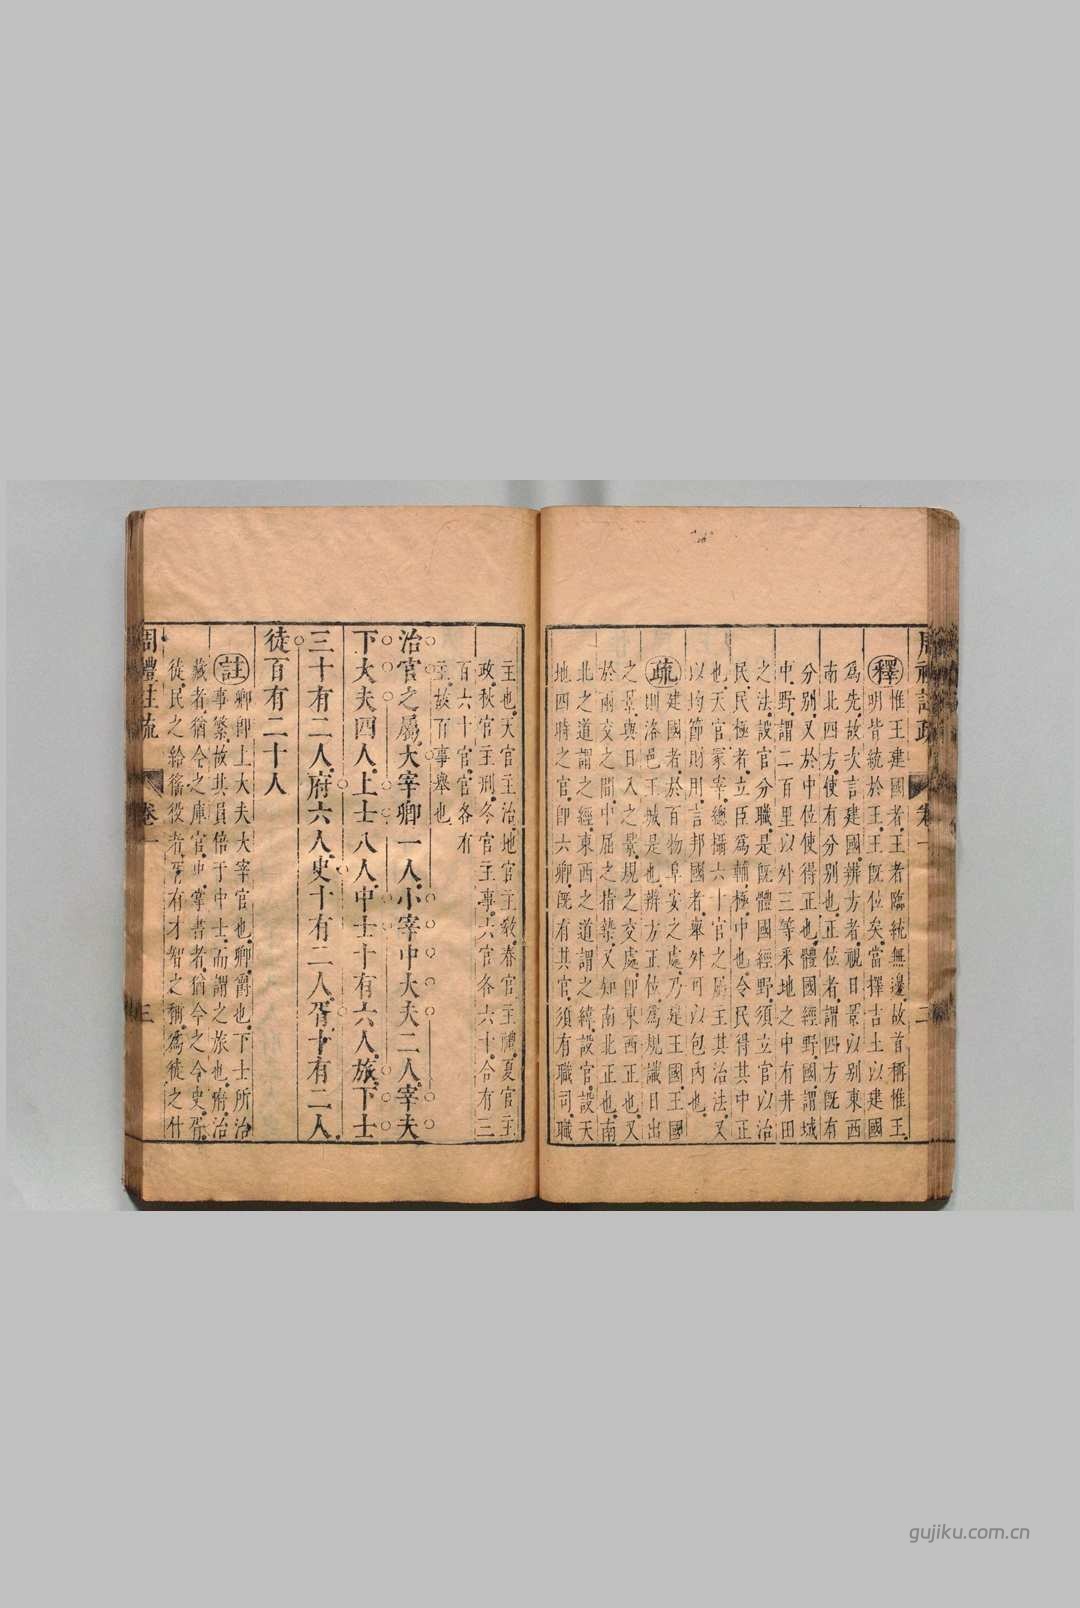 釋惟王建國者王者臨統無邊故首稱惟王
明皆統於王王既位矣當擇吉土以建國
爲先故次言建國辨方者視日景以別東西
南北四方使有分別也正位者謂四方既有
分別又於中位使得正也體國經野國謂城
中野謂二百里以外三等釆地之中有井田
之法設官分職是既體國經野須立官以治
民民極者立臣爲輔極中也令民得其中正
也天官冢宰總攝六十官之屬王其治法又
以均節財用言邦國者舉外可以包內也
疏建國者於百物阜安之處乃是王國王國
則洛邑王城是也辨方正位爲規識日出
之景與日入之景規之交處即東西正也又
於兩交之間中屈之指槷又知南北正也南
北之道謂之經東西之道謂之緯設官設天
地四時之官即六卿既有其官須有職司職
主也天官主治地官主敎春官主禮夏官主
政秋官主刑冬官主事六官各六十合有三
百六十官官各有
主故百事舉也
治官之屬大宰卿一人小宰中大夫二人宰夫
下大夫四人上士八人中士十有六人旅下士
三十有二人府六人史十有二人胥十有二人
徒百有二十人
註卿即上大夫大宰官也卿爵也下士所治
事繁故其員倍于中士而謂之旅也府治
藏者猶今之庫官史掌書者猶今之令史胥
徒民之給徭役者胥有才智之稱爲徒之什
周禮註疏 卷一 三
gujiku.com.cn